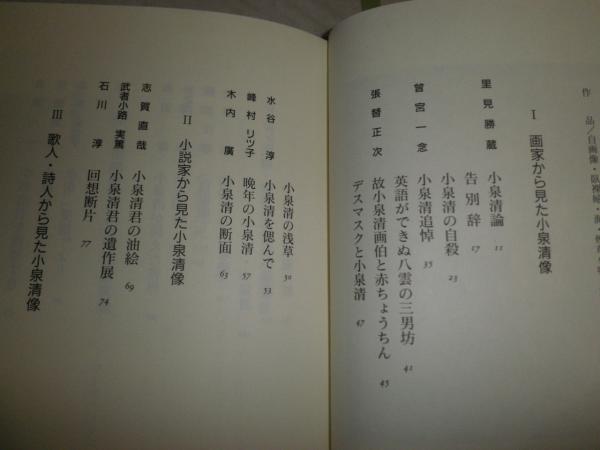 作品/自画像・臥裸婦・
Ⅰ 画家から見た小泉清像
里見勝蔵 小泉清論 11
告別辞 17
小泉清の自殺 23
曾宮一念 小泉清追悼 35
英語ができぬ八雲の三男坊 42
張替正次 故小泉清画伯と赤ちょうちん 45
デスマスクと小泉清 47
小泉清の浅草 50
水谷淳 小泉清を偲んで 53
峰村リツ子 晩年の小泉清 57
木内廣 小泉清の断面 63
Ⅱ 小説家から見た小泉清像
志賀直哉 小泉清君の油絵 69
武者小路実篤 小泉清君の遺作展 74
石川淳 回想断片 77
Ⅲ 歌人・詩人から見た小泉清像